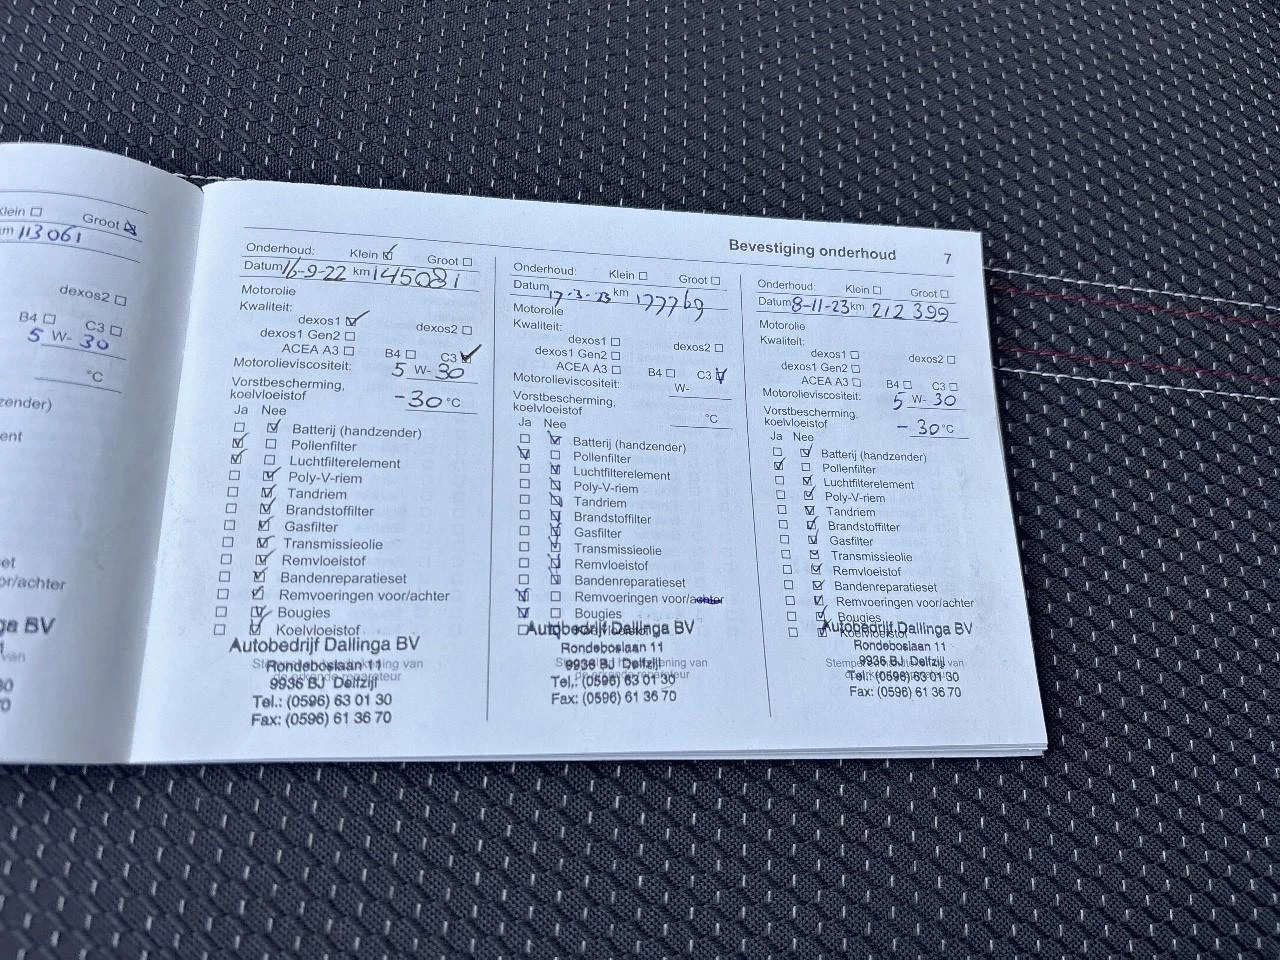 Klein ☐ Groot ☒
km 113061
dexos2 ☐
B4 ☐ C3 ☐
5 W- 30
°C
Bevestiging onderhoud 7
Onderhoud: Klein ☑ Groot ☐
Datum 16-9-22 km 145081
Motorolie
Kwaliteit:
dexos1 ☑ dexos2 ☐
dexos1 Gen2 ☐
ACEA A3 ☐ B4 ☐ C3 ☑
Motorolieviscositeit: 5 W- 30
Vorstbescherming,
koelvloeistof -30 °C
Ja Nee
☐ ☑ Batterij (handzender)
☑ ☐ Pollenfilter
☑ ☐ Luchtfilterelement
☐ ☑ Poly-V-riem
☐ ☑ Tandriem
☐ ☑ Brandstoffilter
☐ ☑ Gasfilter
☐ ☑ Transmissieolie
☐ ☑ Remvloeistof
☐ ☑ Bandenreparatieset
☐ ☑ Remvoeringen voor/achter
☐ ☑ Bougies
☐ ☑ Koelvloeistof
Autobedrijf Dallinga BV
Rondeboslaan 11
9936 BJ Delfzijl
Tel.: (0596) 63 01 30
Fax: (0596) 61 36 70
Onderhoud: Klein ☐ Groot ☐
Datum 17-3-23 km 177769
Motorolie
Kwaliteit:
dexos1 ☐ dexos2 ☐
dexos1 Gen2 ☐
ACEA A3 ☐ B4 ☐ C3 ☑
Motorolieviscositeit: W-
Vorstbescherming,
koelvloeistof °C
Ja Nee
☐ ☑ Batterij (handzender)
☑ ☐ Pollenfilter
☐ ☑ Luchtfilterelement
☐ ☑ Poly-V-riem
☐ ☑ Tandriem
☐ ☑ Brandstoffilter
☐ ☑ Gasfilter
☐ ☑ Transmissieolie
☐ ☑ Remvloeistof
☐ ☑ Bandenreparatieset
☑ ☐ Remvoeringen voor/achter
☑ ☐ Bougies
Autobedrijf Dallinga BV
Rondeboslaan 11
9936 BJ Delfzijl
Tel.: (0596) 63 01 30
Fax: (0596) 61 36 70
Onderhoud: Klein ☐ Groot ☐
Datum 8-11-23 km 212 399
Motorolie
Kwaliteit:
dexos1 ☐ dexos2 ☐
dexos1 Gen2 ☐
ACEA A3 ☐ B4 ☐ C3 ☐
Motorolieviscositeit: 5 W- 30
Vorstbescherming,
koelvloeistof - 30 °C
Ja Nee
☐ ☑ Batterij (handzender)
☑ ☐ Pollenfilter
☐ ☑ Luchtfilterelement
☐ ☑ Poly-V-riem
☐ ☑ Tandriem
☐ ☑ Brandstoffilter
☐ ☑ Gasfilter
☐ ☑ Transmissieolie
☐ ☑ Remvloeistof
☐ ☑ Bandenreparatieset
☐ ☑ Remvoeringen voor/achter
☐ ☑ Bougies
☐ ☑ Koelvloeistof
Autobedrijf Dallinga BV
Rondeboslaan 11
9936 BJ Delfzijl
Tel.: (0596) 63 01 30
Fax: (0596) 61 36 70